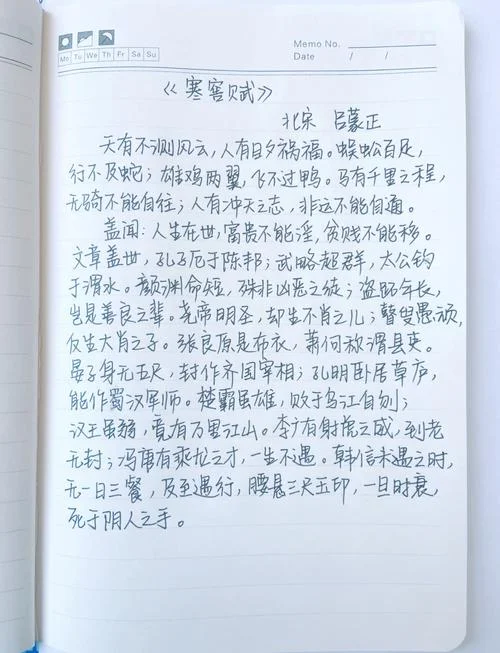 Mo Tu We Th Fr Sa Su
Memo No.
Date / /
《寒窑赋》
北宋 吕蒙正
天有不测风云，人有旦夕祸福。蜈蚣百足，
行不及蛇；雄鸡两翼，飞不过鸭。马有千里之程，
无骑不能自往；人有冲天之志，非运不能自通。
盖闻：人生在世，富贵不能淫，贫贱不能移。
文章盖世，孔子厄于陈邦；武略超群，太公钓
于渭水。颜渊命短，殊非凶恶之徒；盗跖年长，
岂是善良之辈。尧帝明圣，却生不肖之儿；瞽叟愚顽，
反生大肖之子。张良原是布衣，萧何称谓县吏。
晏子身无五尺，封作齐国宰相；孔明卧居草庐，
能作蜀汉军师。楚霸虽雄，败于乌江自刎；
汉王虽弱，竟有万里江山。李广有射虎之威，到老
无封；冯唐有乘龙之才，一生不遇。韩信未遇之时，
无一日三餐，及至遇行，腰悬三尺玉印，一旦时衰，
死于阴人之手。